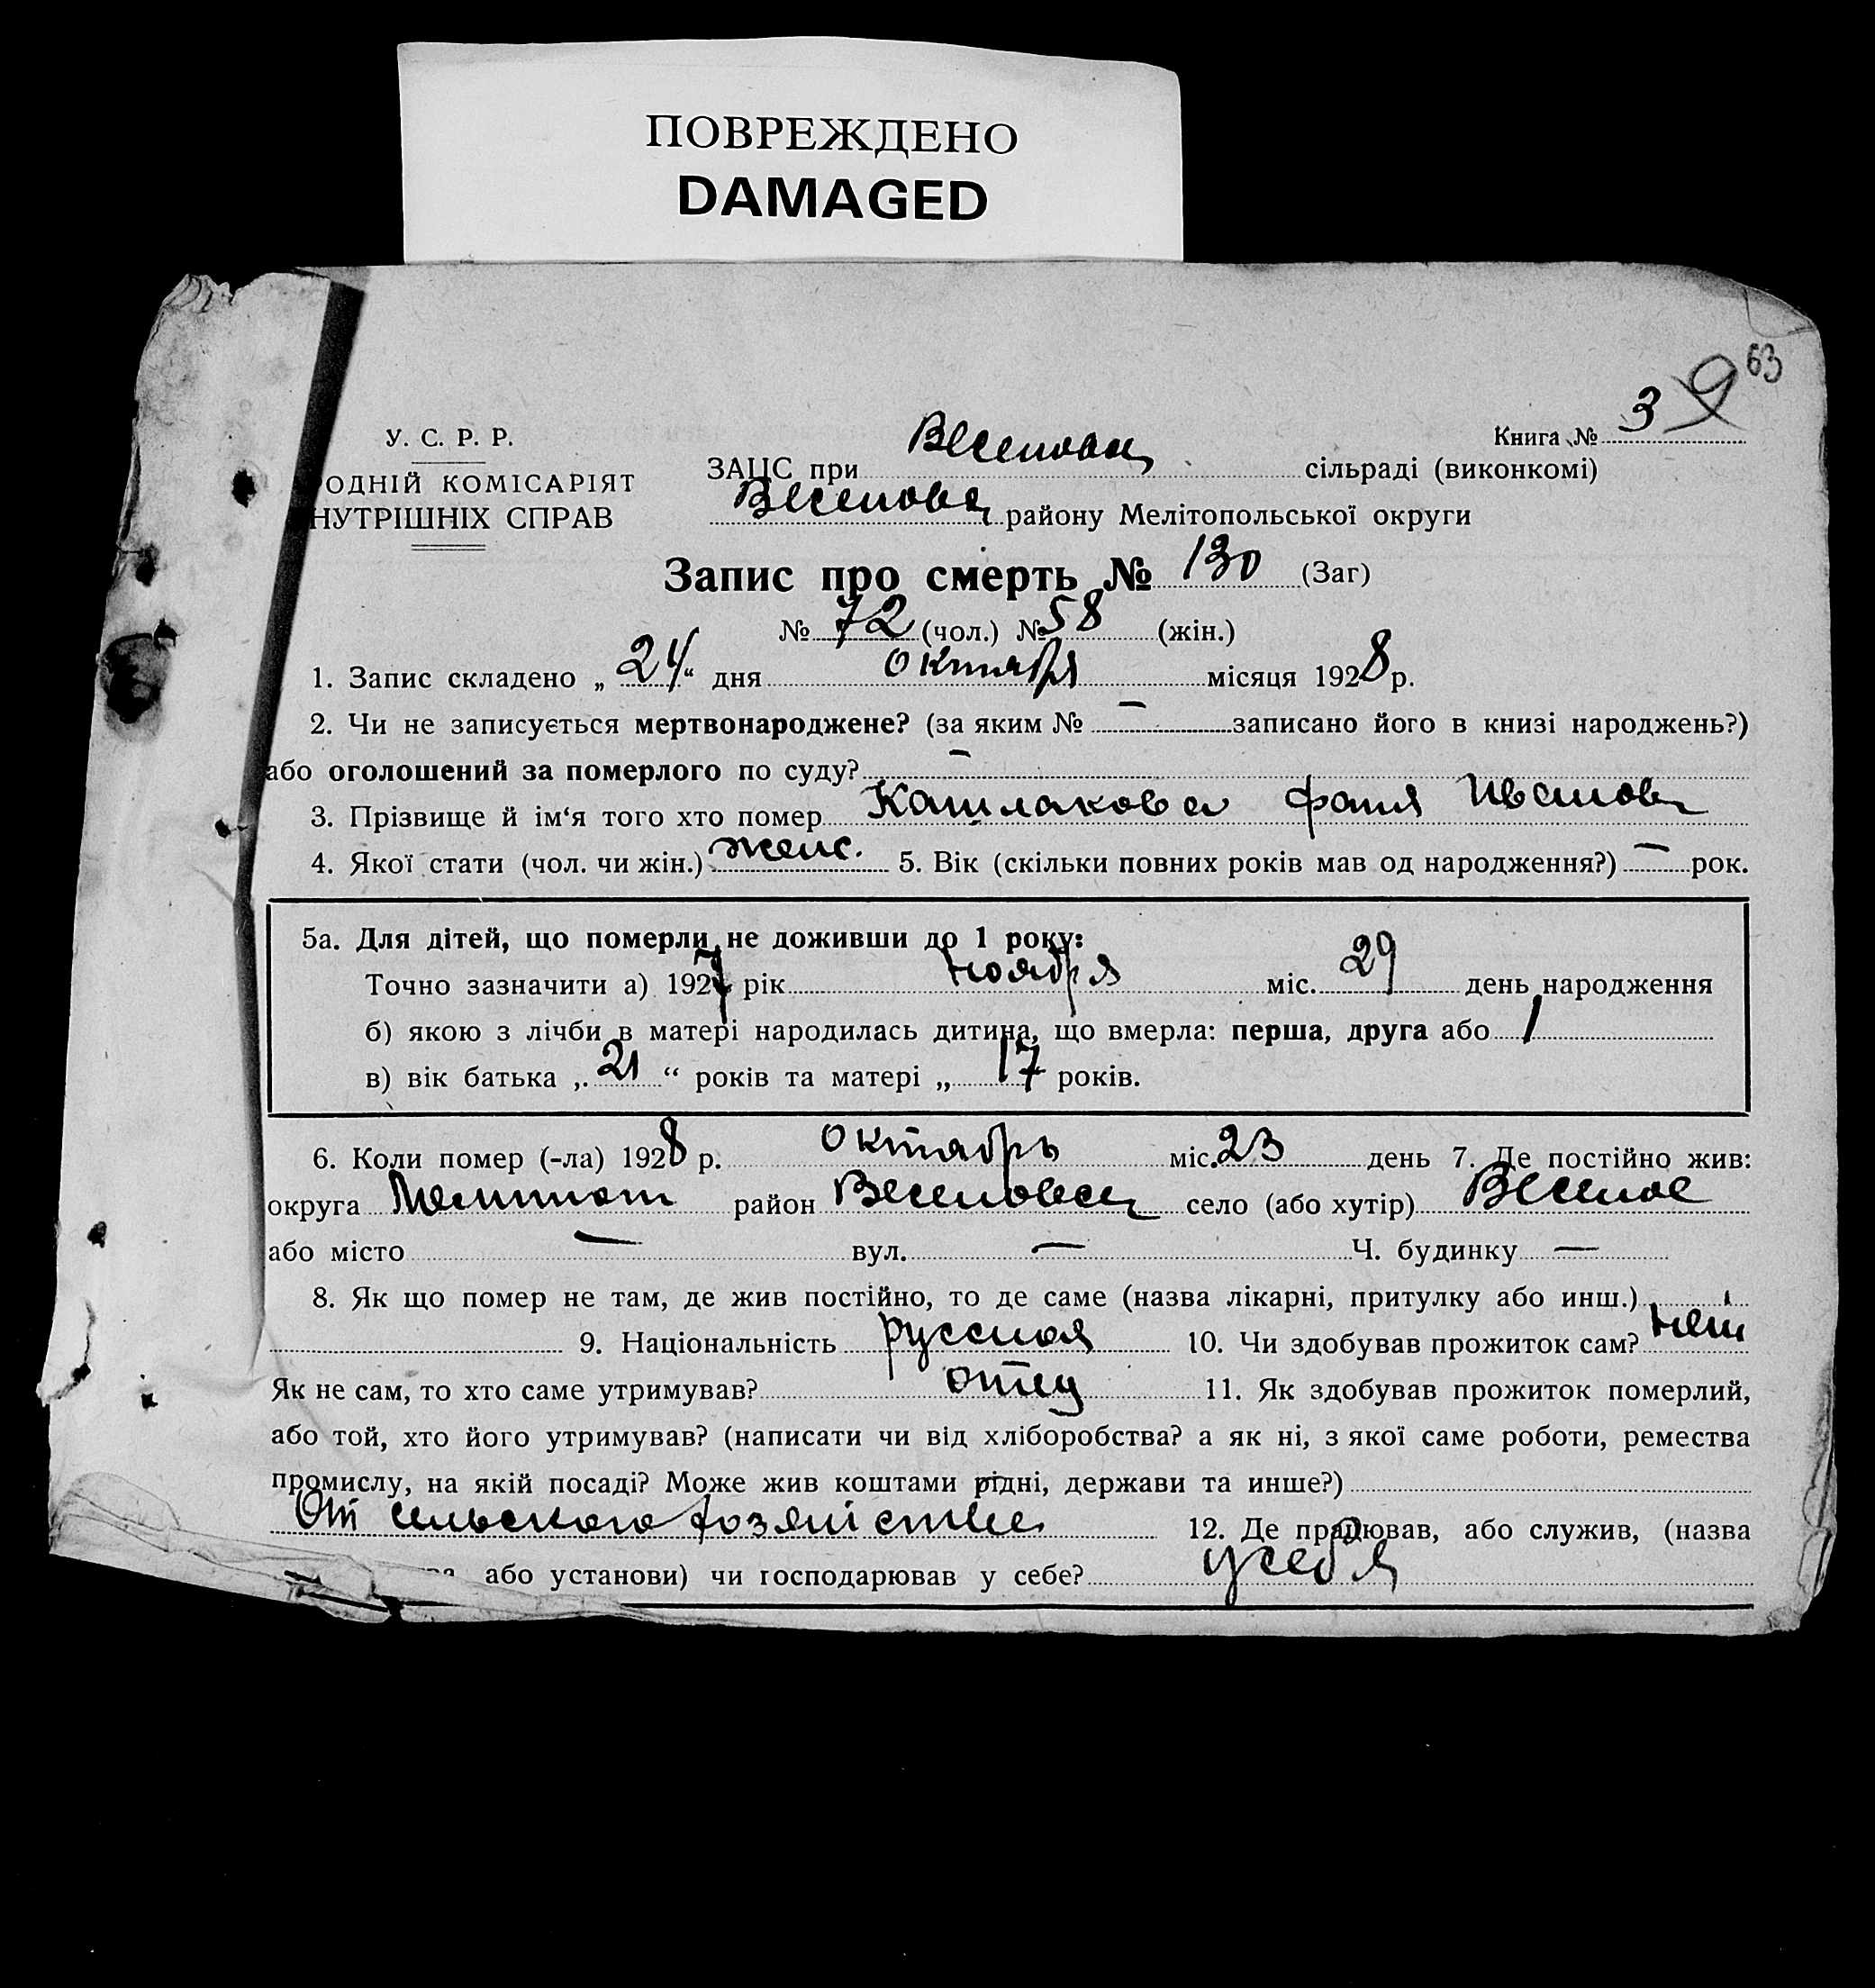 ПОВРЕЖДЕНО
DAMAGED
63
Книга № 3 9
У. С. Р. Р.
ОДНІЙ КОМІСАРІЯТ
НУТРІШНІХ СПРАВ
ЗАЦС при сільраді (виконкомі)
району Мелітопольської округи
Запис про смерть № 130 (Заг)
№ 72 (чол.) № 58 (жін.)
1. Запис складено „ 24 “ дня октября місяця 1928 р.
2. Чи не записується мертвонароджене? (за яким № — записано його в книзі народжень?)
або оголошений за померлого по суду? —
3. Прізвище й ім‘я того хто помер Иванов
4. Якої стати (чол. чи жін.) женс. 5. Вік (скільки повних років мав од народження?) — рок.
5а. Для дітей, що померли не доживши до 1 року:
Точно зазначити а) 1927 рік ноября міс. 29 день народження
б) якою з лічби в матері народилась дитина, що вмерла: перша, друга або 1
в) вік батька „ 21 “ років та матері „ 17 років.
6. Коли помер (-ла) 1928 р. октябрь міс. 23 день 7. Де постійно жив:
округа Мелитоп район село (або хутір) Веселое
або місто — вул. — Ч. будинку —
8. Як що помер не там, де жив постійно, то де саме (назва лікарні, притулку або инш.)
9. Національність русская 10. Чи здобував прожиток сам? нет
Як не сам, то хто саме утримував? отец 11. Як здобував прожиток померлий,
або той, хто його утримував? (написати чи від хліборобства? а як ні, з якої саме роботи, ремества
промислу, на якій посаді? Може жив коштами рідні, держави та инше?)
От сельского хозяйства 12. Де працював, або служив, (назва
або установи) чи господарював у себе? у себя